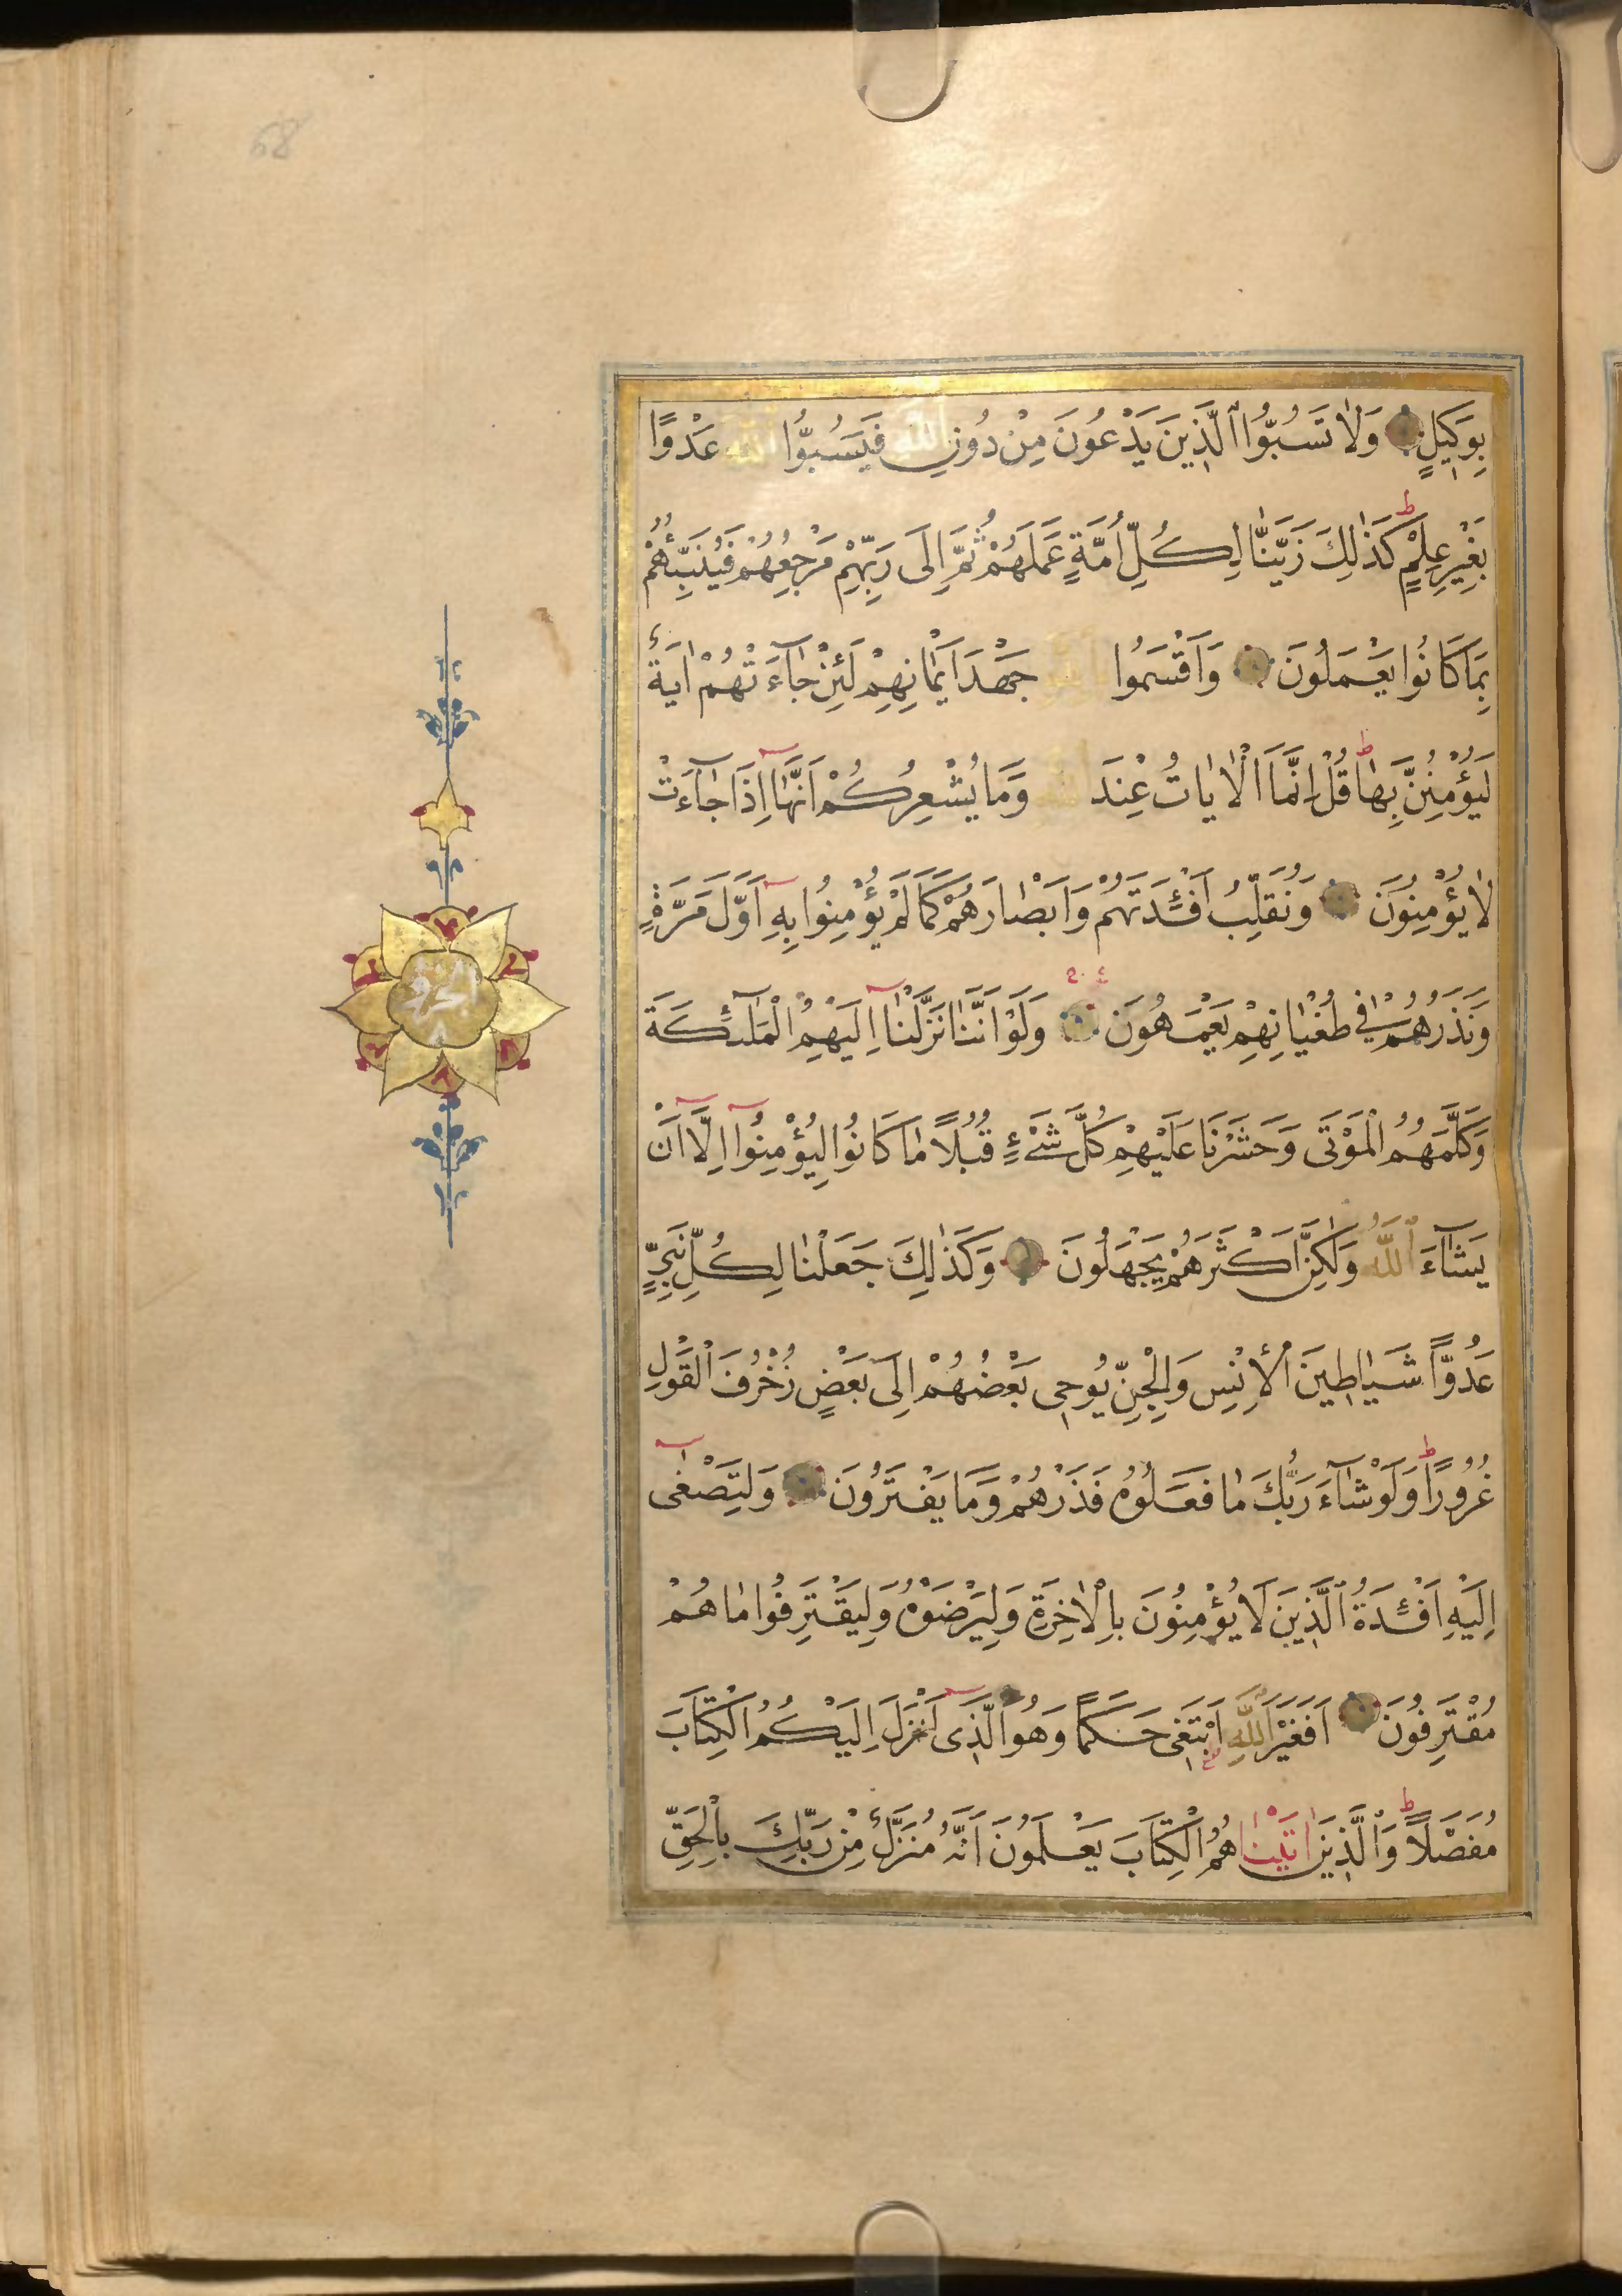 68
بِوَكِيلٍ وَلَا تَسُبُّوا الَّذِينَ يَدْعُونَ مِنْ دُونِ اللّٰهِ فَيَسُبُّوا اللّٰهَ عَدْوًا
بِغَيْرِ عِلْمٍ ط كَذٰلِكَ زَيَّنَّا لِكُلِّ اُمَّةٍ عَمَلَهُمْ ثُمَّ اِلَى رَبِّهِمْ مَرْجِعُهُمْ فَيُنَبِّئُهُمْ
بِمَا كَانُوا يَعْمَلُونَ وَاَقْسَمُوا بِاللّٰهِ جَهْدَ اَيْمَانِهِمْ لَئِنْ جَآءَتْهُمْ اٰيَةٌ
لَيُؤْمِنُنَّ بِهَا ط قُلْ اِنَّمَا الْاٰيَاتُ عِنْدَ اللّٰهِ وَمَا يُشْعِرُكُمْ اَنَّهَٓا اِذَا جَآءَتْ
لَا يُؤْمِنُونَ وَنُقَلِّبُ اَفْـِٔدَتَهُمْ وَاَبْصَارَهُمْ كَمَا لَمْ يُؤْمِنُوا بِهِٓ اَوَّلَ مَرَّةٍ
وَنَذَرُهُمْ فِي طُغْيَانِهِمْ يَعْمَهُونَ وَلَوْ اَنَّنَا نَزَّلْنَٓا اِلَيْهِمُ الْمَلٰٓئِكَةَ
وَكَلَّمَهُمُ الْمَوْتَى وَحَشَرْنَا عَلَيْهِمْ كُلَّ شَيْءٍ قُبُلًا مَا كَانُوا لِيُؤْمِنُوٓا اِلَّٓا اَنْ
يَشَآءَ اللّٰهُ وَلٰكِنَّ اَكْثَرَهُمْ يَجْهَلُونَ وَكَذٰلِكَ جَعَلْنَا لِكُلِّ نَبِيٍّ
عَدُوًّا شَيَاطِينَ الْاِنْسِ وَالْجِنِّ يُوحِي بَعْضُهُمْ اِلَى بَعْضٍ زُخْرُفَ الْقَوْلِ
غُرُورًا ط وَلَوْ شَآءَ رَبُّكَ مَا فَعَلُوهُ فَذَرْهُمْ وَمَا يَفْتَرُونَ وَلِتَصْغٰٓى
اِلَيْهِ اَفْـِٔدَةُ الَّذِينَ لَا يُؤْمِنُونَ بِالْاٰخِرَةِ وَلِيَرْضَوْهُ وَلِيَقْتَرِفُوا مَا هُمْ
مُقْتَرِفُونَ اَفَغَيْرَ اللّٰهِ اَبْتَغِي حَكَمًا وَهُوَ الَّذِٓي اَنْزَلَ اِلَيْكُمُ الْكِتَابَ
مُفَصَّلًا ط وَالَّذِينَ اٰتَيْنَاهُمُ الْكِتَابَ يَعْلَمُونَ اَنَّهُ مُنَزَّلٌ مِنْ رَبِّكَ بِالْحَقِّ
الجزؤ
٨